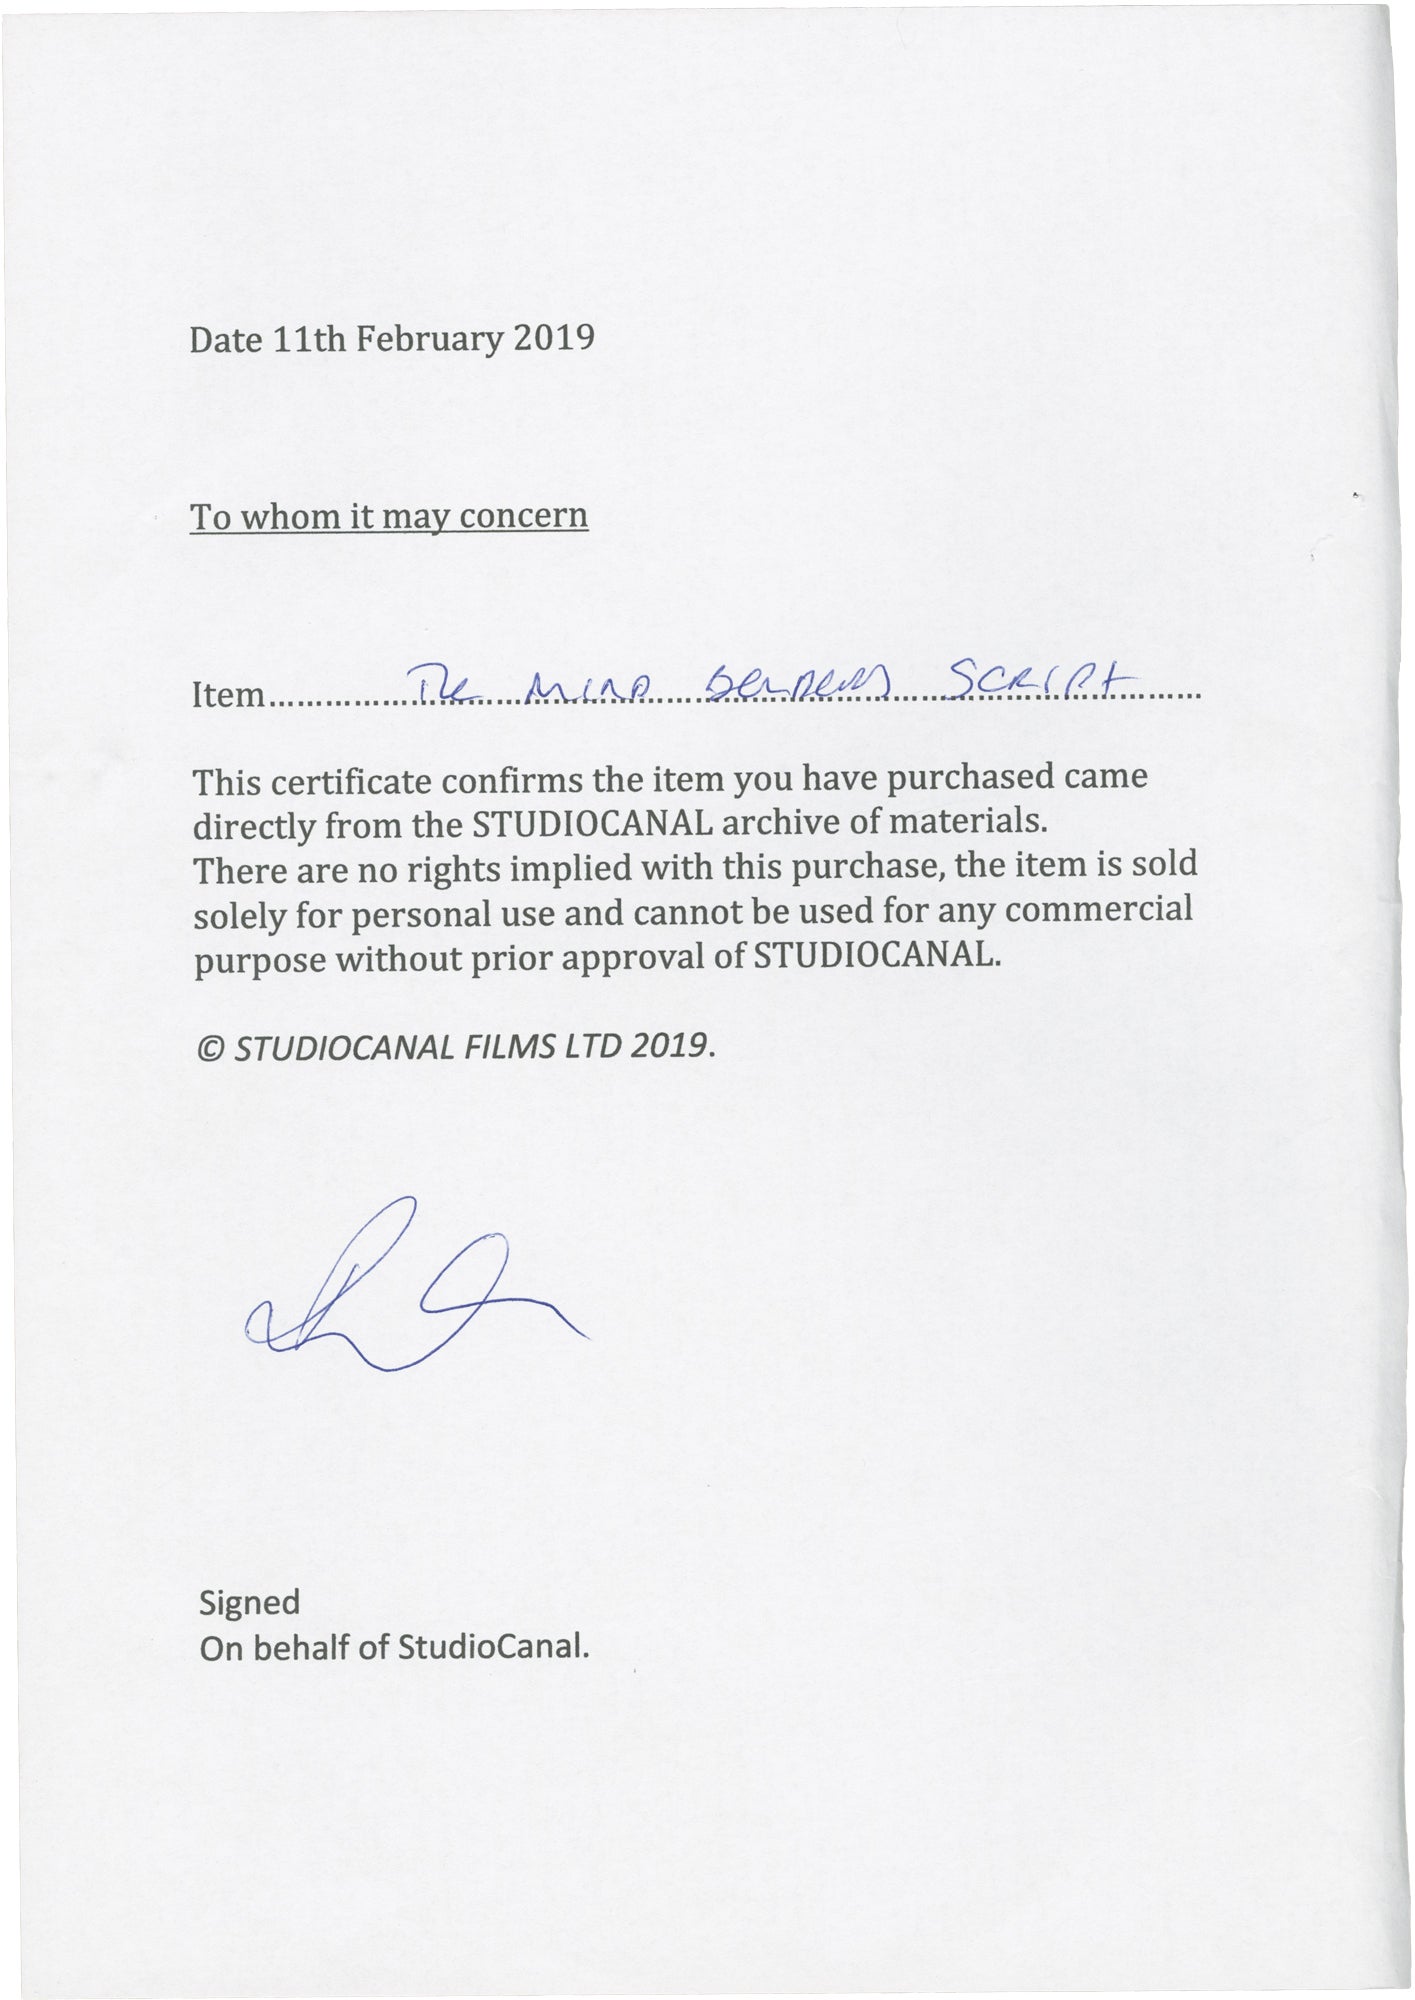 Date 11th February 2019
To whom it may concern
Item..................The Mind Benders Script............
This certificate confirms the item you have purchased came
directly from the STUDIOCANAL archive of materials.
There are no rights implied with this purchase, the item is sold
solely for personal use and cannot be used for any commercial
purpose without prior approval of STUDIOCANAL.
© STUDIOCANAL FILMS LTD 2019.
Signed
On behalf of StudioCanal.